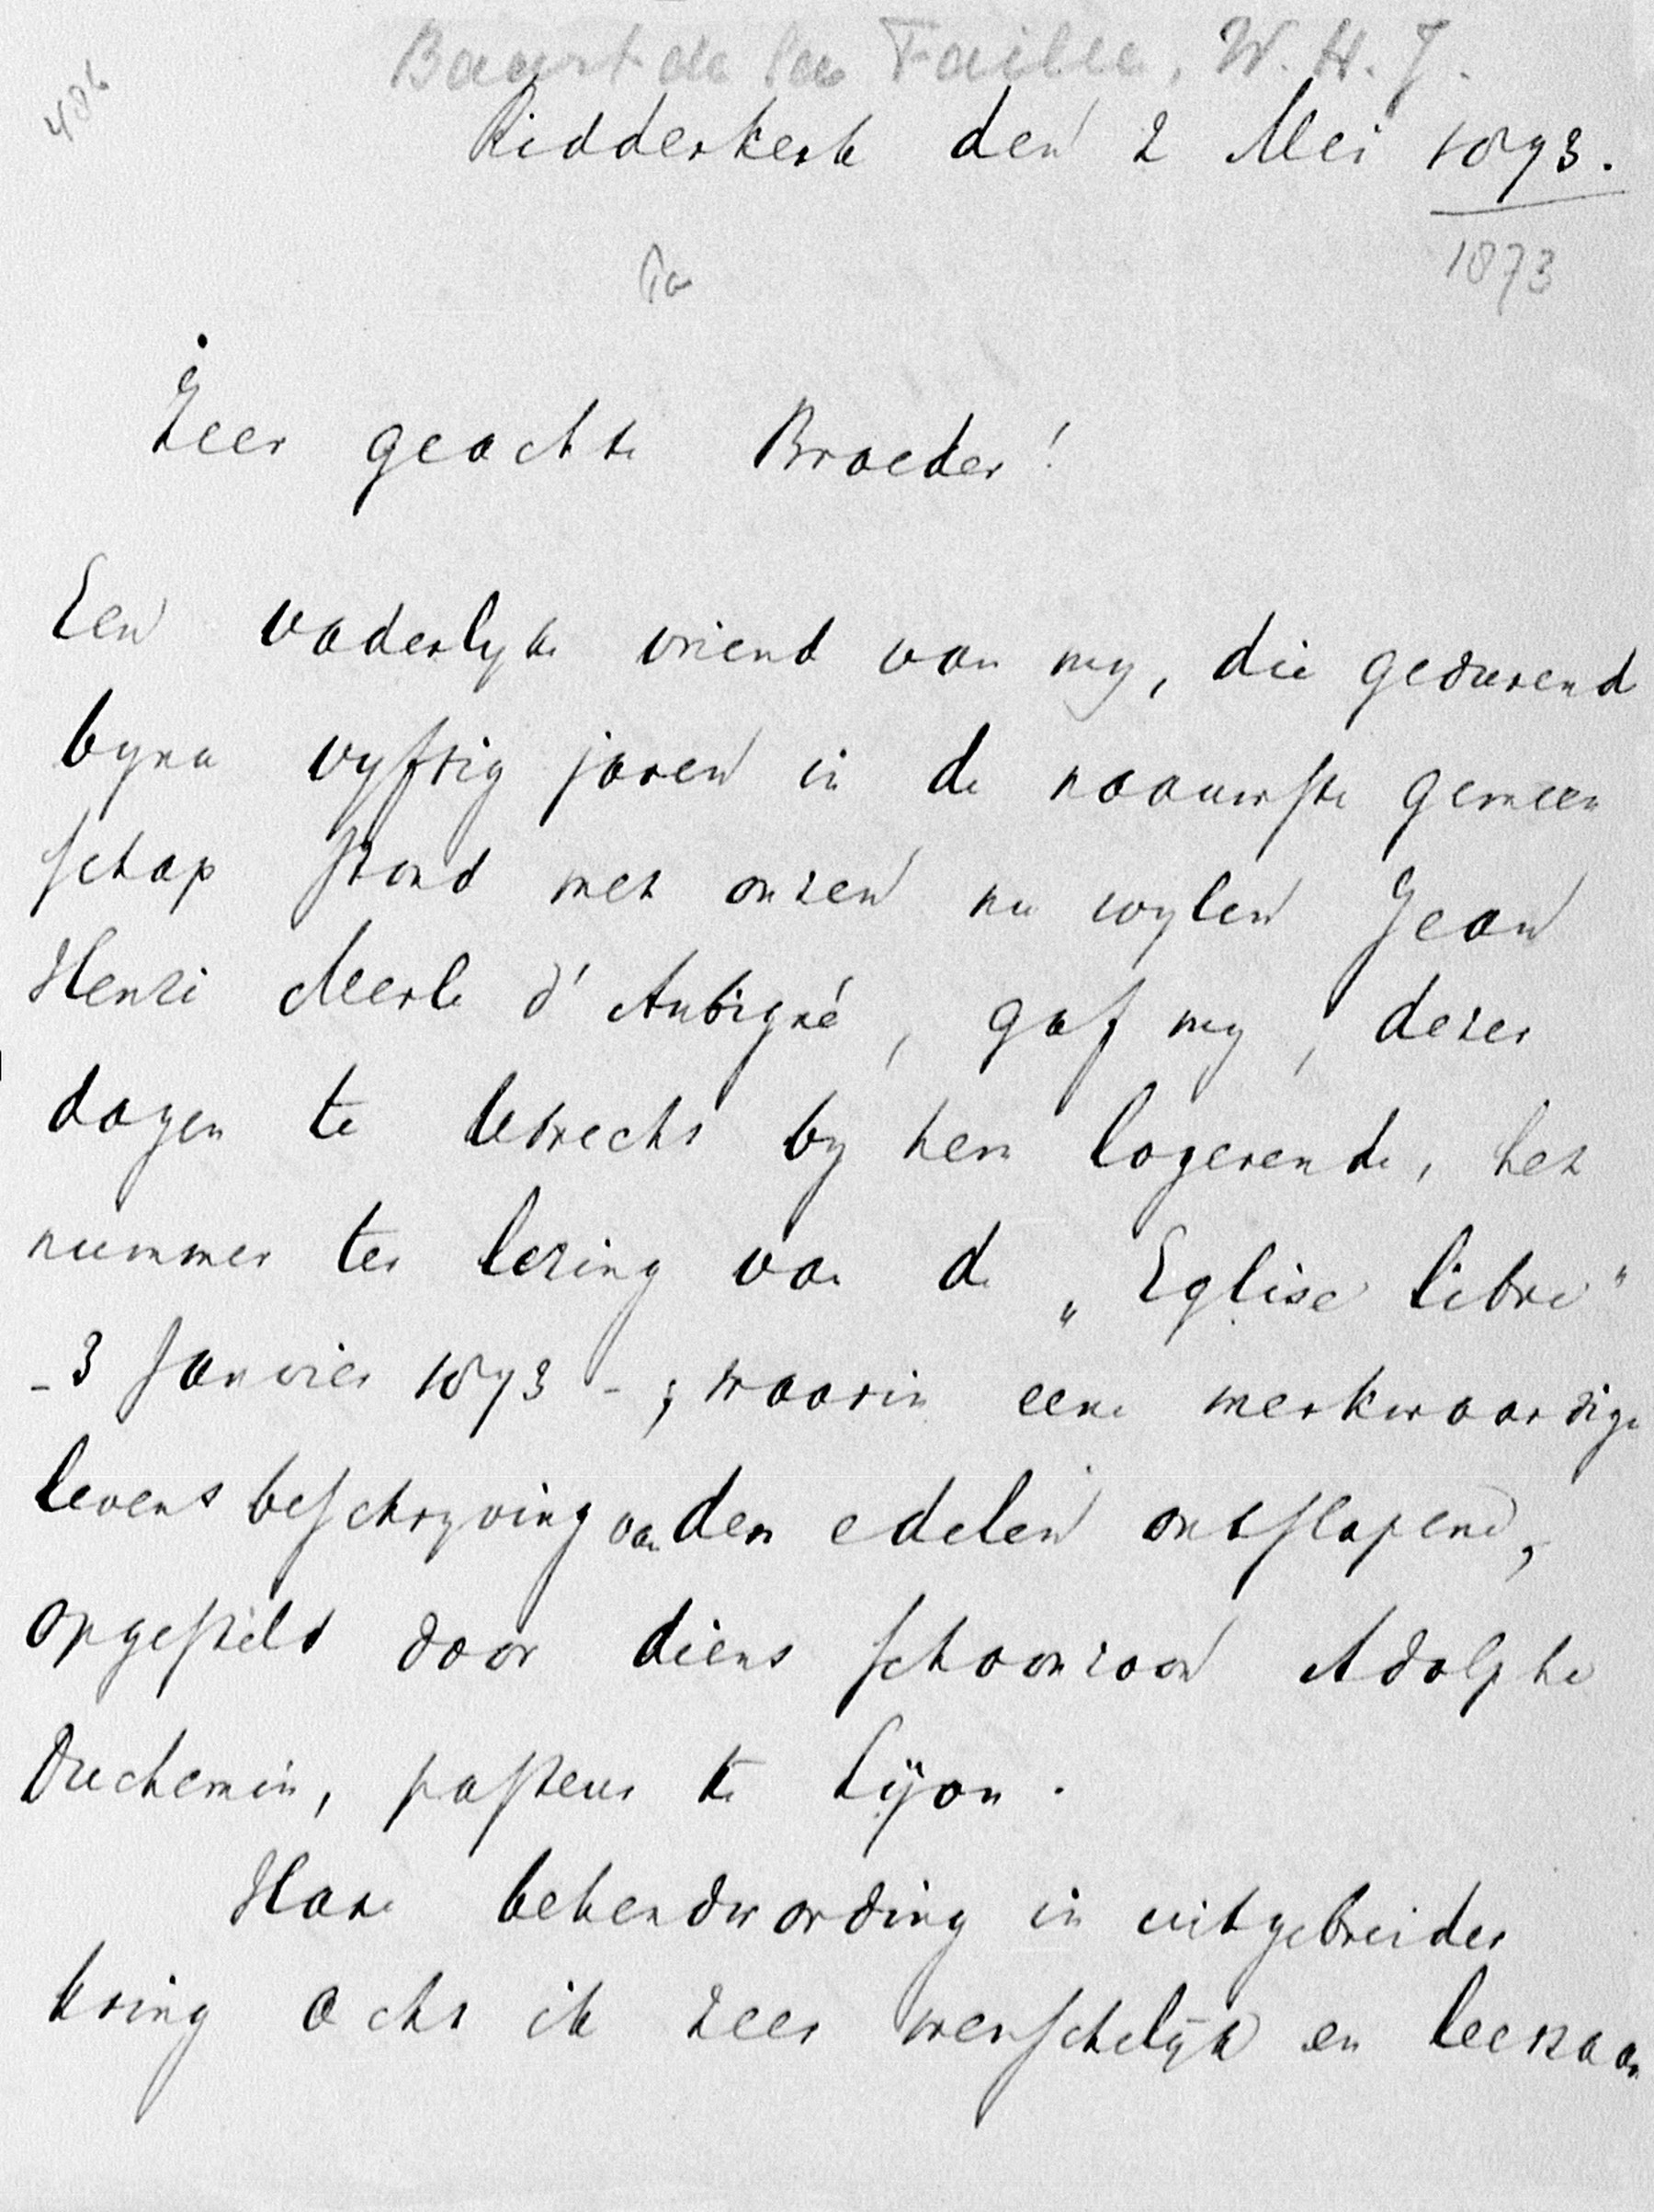 Baart de la Faille, W. H. J.
486
Ridderkerk den 2 Mei 1873.
1873
Zeer geachte Broeder!
Een vaderlyke vriend van my, die gedurend
byna vyftig jaren in de naauwste gemeen
schap stond met onzen nu wylen Jean
Henri Merle d'Aubigné, gaf my, dezer
dagen te Utrecht by hem logerende, het
nummer ter lezing van de „Eglise libre"
- 3 Janvier 1873 - ; waarin eene merkwaardige
levensbeschryving van den edelen ontslapene,
opgesteld door diens schoonzoon Adolphe
Duchemin, pasteur te Lÿon.
Hare bekendwording in uitgebreider
kring acht ik zeer wenschelÿk en leerzaam